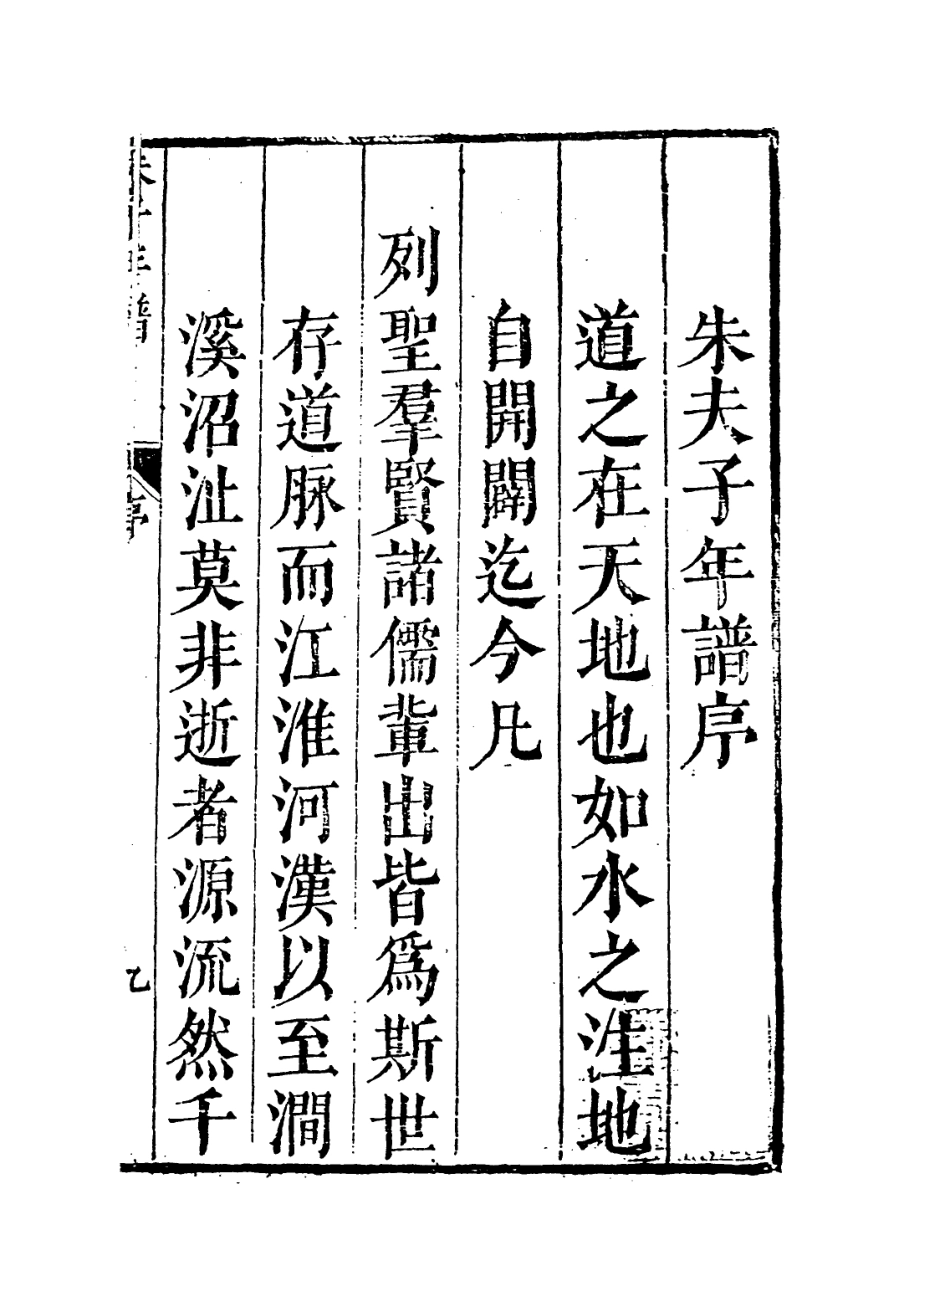 朱夫子年譜序
道之在天地也如水之注地
自開闢迄今凡
列聖羣賢諸儒輩出皆爲斯世
存道脉而江淮河漢以至澗
溪沼沚莫非逝者源流然千
朱子年譜 序 乙